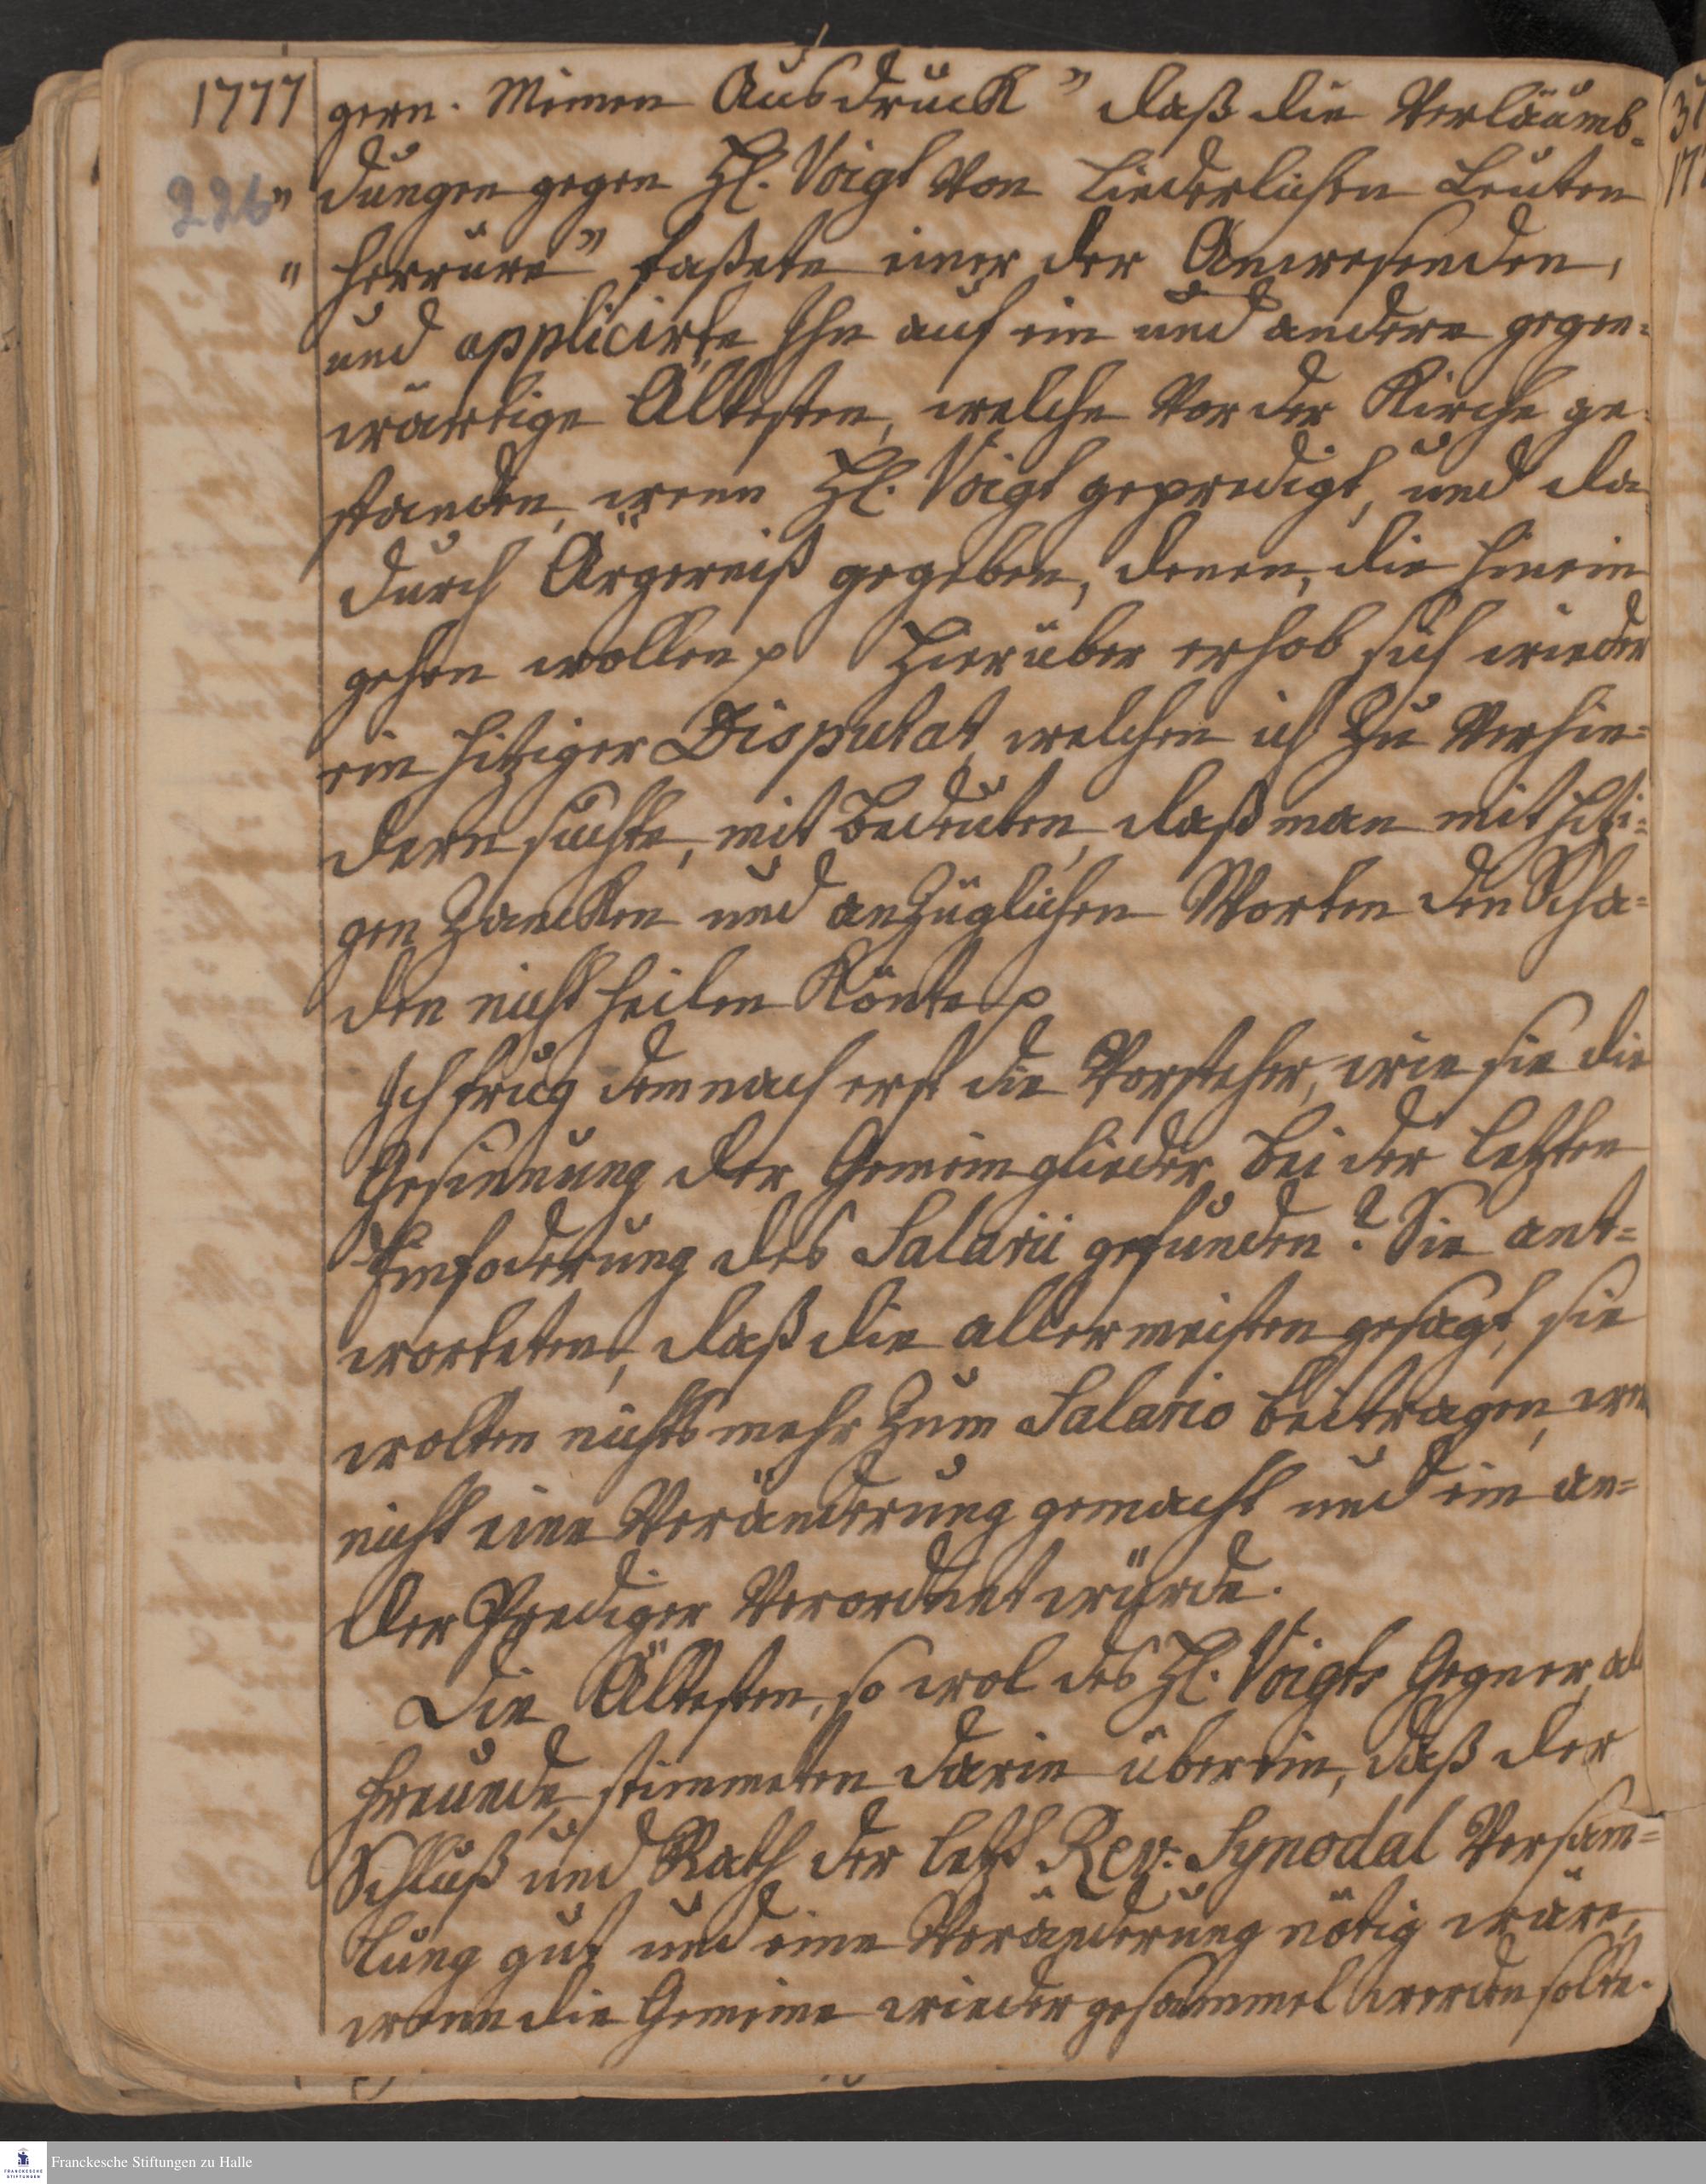 1777 gern. Meinen Ausdruck " daß die Verläumb-
226 " dungen gegen H. Voigt von liederlichen Leuten
" herrüre" faßete einer der Anwesenden,
und applicirte Ihn auf ein und andere gegen-
wärtige Ältesten, welche vor der Kirche ge-
standen, wenn H. Voigt gepredigt, und da
durch Ärgerniß gegeben, denen, die hinein
gehen wollen p Hierüber erhob sich wieder
ein hitziger Disputat, welchen ich zu verhin=
dern suchte, mit bedeuten, daß man mit hizi=
gen Zancken und anzüglichen Worten den Scha=
den nicht heilen könte p
Ich frug demnach erst die Vorsteher, wie sie die
Gesinnung der Gemeinglieder bei der letzten
Einfoderung des Salarii gefunden? Sie ant=
worteten, daß die allermeisten gesagt, sie
wolten nichts mehr zum Salario beitragen, wen
nicht eine Veränderung gemacht und ein an=
der Prediger verordnet würde.
Die Ältesten, so wol des H. Voigts Gegner, al
Freunde, stimmeten darin überein, daß der
Schluß und Rath der letzt Rev: Synodal Versam=
lung gut und eine Veränderung nötig wäre,
wenn die Gemeine wieder gesammelt werden solte.
Franckesche Stiftungen zu Halle